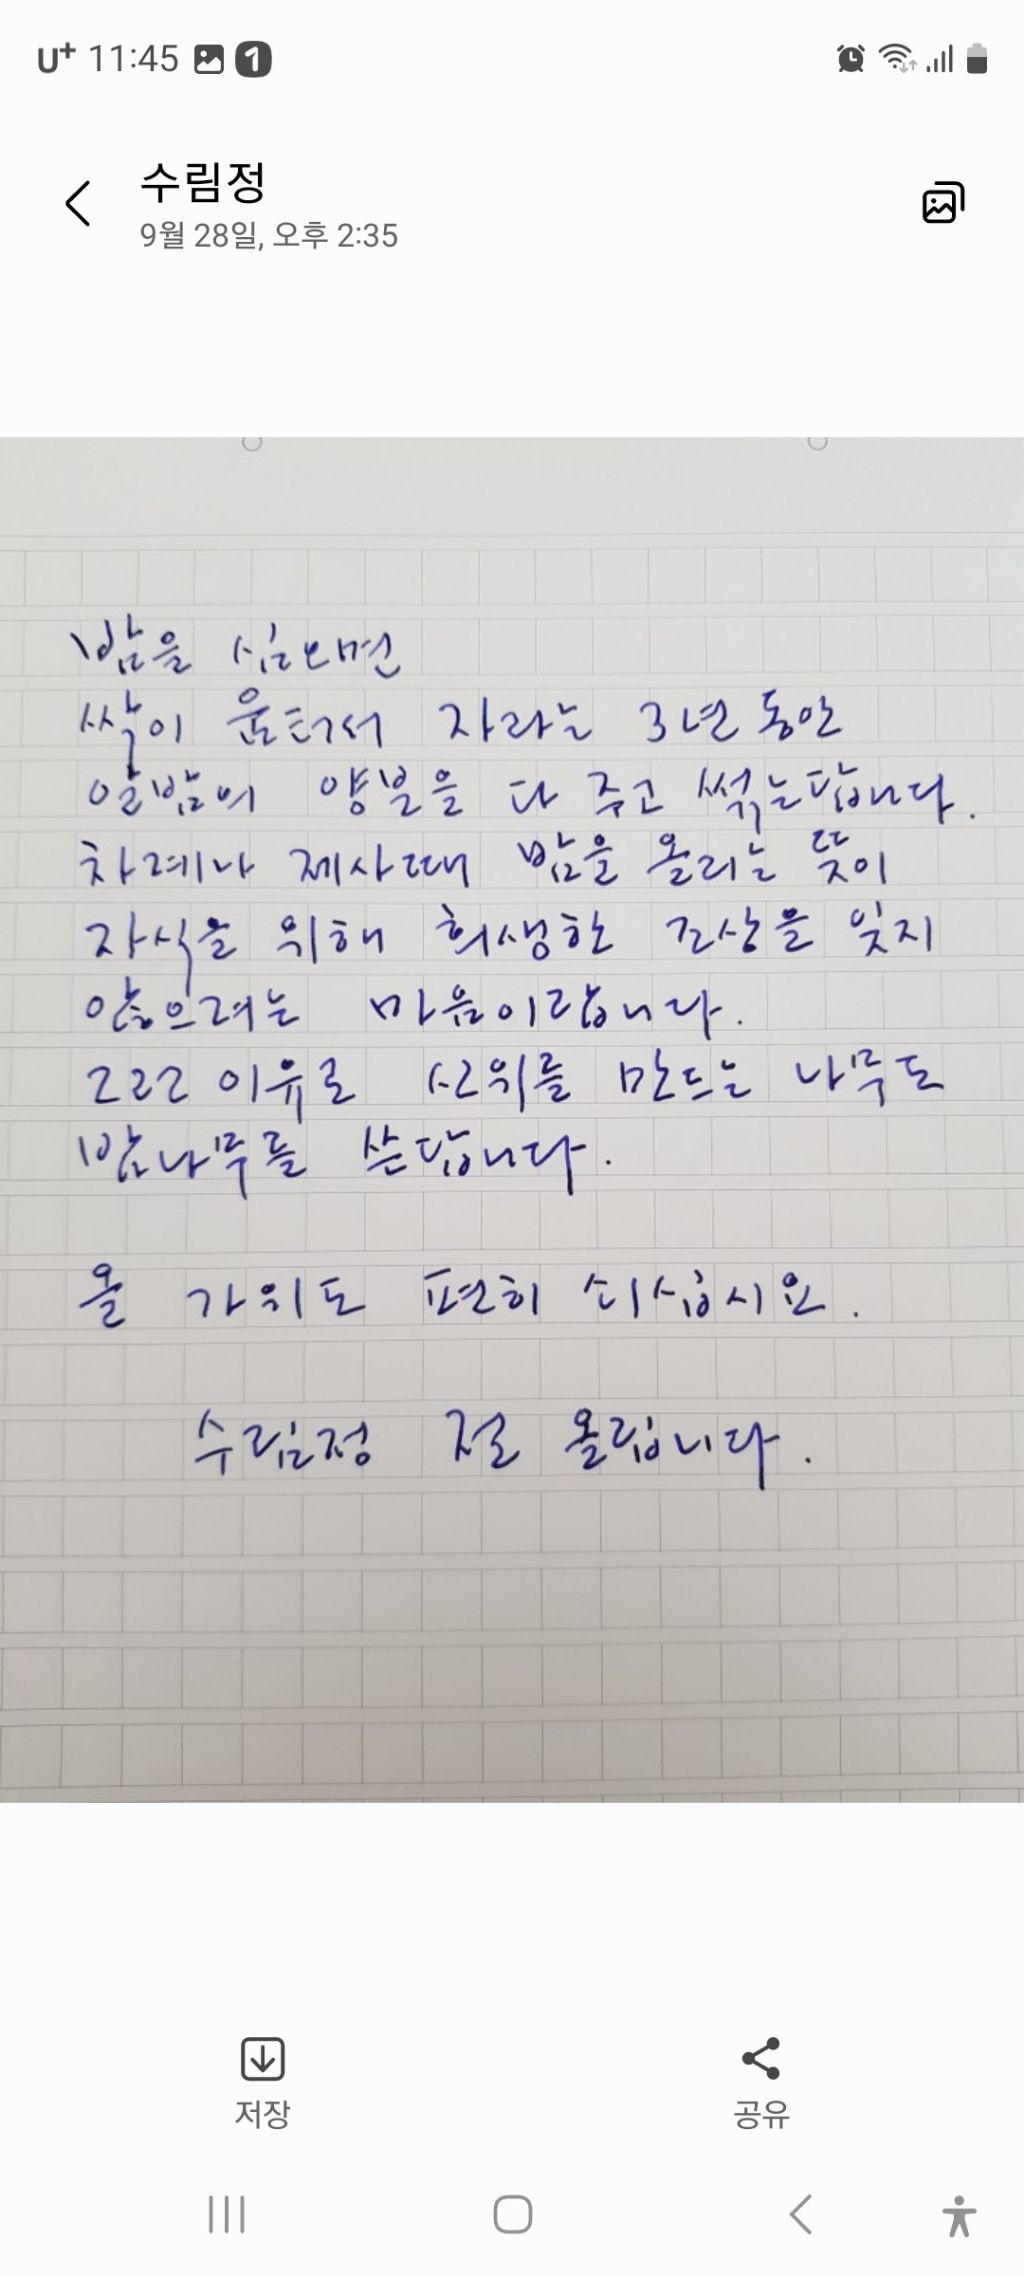 U+ 11:45 1
수림정
9월 28일, 오후 2:35
밤을 심으면
싹이 움터서 자라는 3년 동안
알밤의 양분을 다 주고 썩는답니다.
차례나 제사때 밤을 올리는 뜻이
자식을 위해 희생한 조상을 잊지
않으려는 마음이랍니다.
그런 이유로 신위를 만드는 나무도
밤나무를 쓴답니다.
올 가위도 편히 쉬십시요.
수림정 절 올립니다.
저장 공유